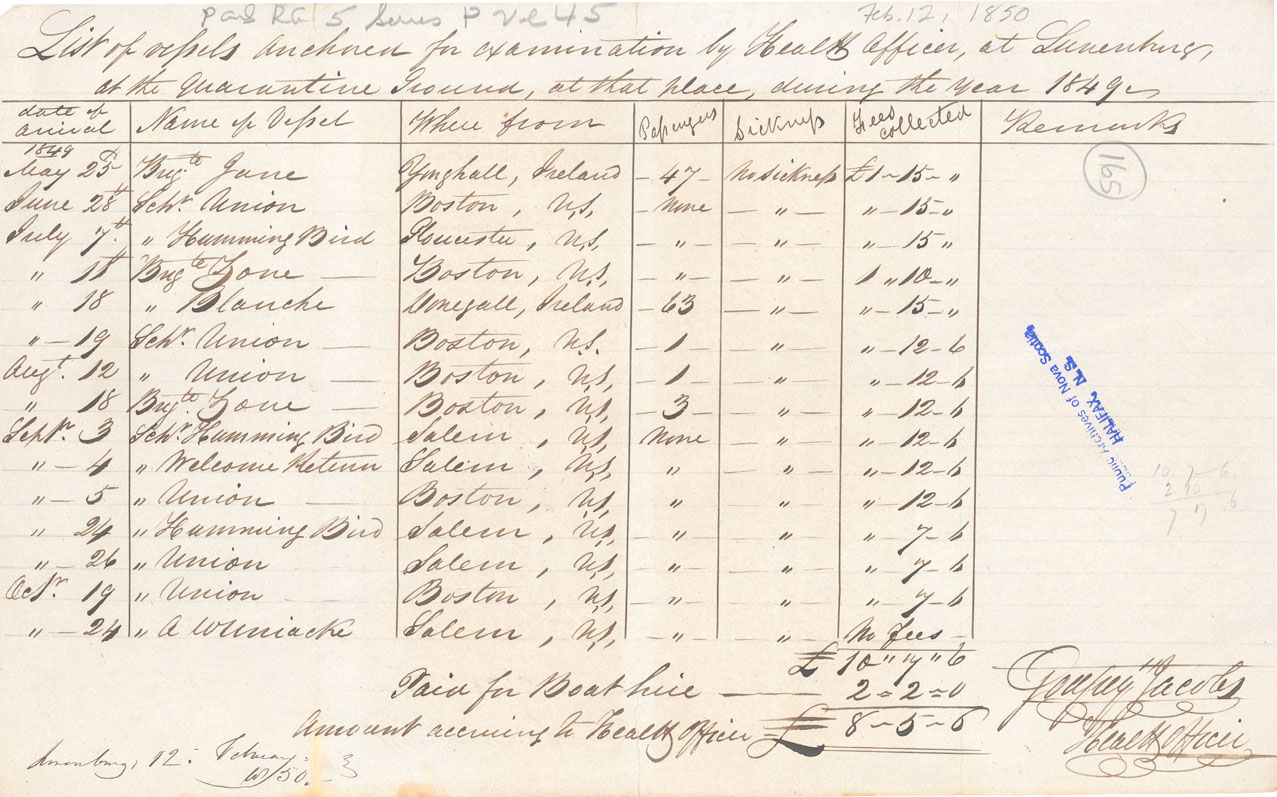 PANS RG 5 Series P Vol 45 Feb. 12, 1850
List of vessels anchored for examination by Health Officer, at Lunenburg,
at the Quarantine Ground, at that place, during the Year 1849.
date of arrival Name of Vessel Where from Passengers Sickness Fees collected Remarks
1849
May 25th Brigte Jane Youghall, Ireland - 47 - No Sickness £1 - 15 - "
June 28th Schr Union Boston, U.S. - None - " - " - 15 - "
July 7th " Humming Bird Gloucester, U.S. - " - - " - " - 15 "
" Brigte Zone Boston, U.S. - " - - " - 1 " 10 - "
" 18 " Blanche Donegall, Ireland - 63 - " - " - 15 - "
" - 19 Schr Union Boston, U.S. - 1 - - " - " - 12 - 6
Augt. 12 " Union Boston, U.S. - 1 - - " - " - 12 - 6
" 18 Brigte Zone Boston, U.S. - 3 - - " - " - 12 - 6
Septr. 3 Schr Humming Bird Salem, U.S. None - " - " - 12 - 6
" - 4 " Welcome Return Salem, U.S. " - " - " - 12 - 6
" - 5 " Union Boston, U.S. " - " - " - 12 - 6
" - 24 " Humming Bird Salem, U.S. " - " - " - 7 - 6
" - 26 " Union Salem, U.S. - " - - " - " - 7 - 6
Octr. 19 " Union Boston, U.S. - " - - " - " - 7 - 6
" - 24 " A Uniacke Salem, U.S. - " - - " - No Fees -
£ 10 " 7 " 6
Paid for Boat hire 2 = 2 = 0
Amount accruing to Health Officer £ 8 - 5 - 6
Godfrey Jacobs
Health Officer
Lunenburg, 12: February
1850
165
Public Archives of Nova Scotia
HALIFAX, N. S.
10 7 - 6
2 10
7 17 6